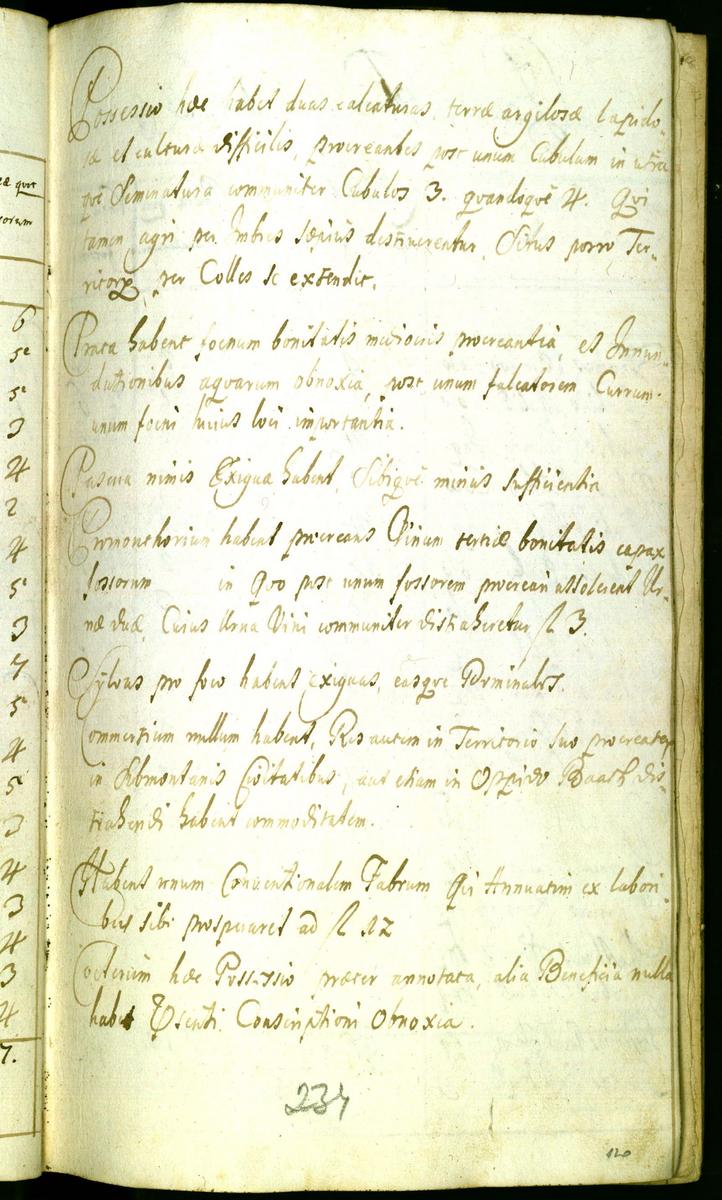 Possessio hæc habet duas calcaturas, terræ argilosæ lapido-
sæ et culturæ difficilis, procreantes post unum Cubulum in utra
què Seminatura communiter Cubulos 3. quandoquè 4. Qui
tamen agri per Imbres sæpius destruerentur, Situs porro Ter-
per Colles se extendit.
Prata habent foenum bonitatis mediocris procreantia, et Innun-
dationibus aquarum obnoxia, post unum falcatorem Currum
unum foeni huius loci importantia.
Pascua nimis Exigua habent, Sibiquè minus Sufficientia
Promonthorium habent procreans Vinum tertiæ bonitatis capax
fossorum in Quo post unum fossorem procreari assolerent Ur-
næ duæ, Cuius Urna Vini communiter distraheretur fl 3.
Sylvas pro foco habent exiguas, easque
Commertium nullum habent, Res autem in Territorio Suo procreatas
in Submontanis Civitatibus, aut etiam in Oppido Baath dis-
trahendi habent commoditatem.
Habent unum Conventionalem Fabrum Qui Annuatim ex labori-
bus sibi prosperaret ad fl 12
Coeterum hæc Possessio præter annotata, alia Beneficia nulla
habet Conscriptioni Obnoxia.
234
120
æ quot
sorum
6
5
5
3
4
2
4
5
3
7
5
4
5
3
4
3
4
3
4
7.